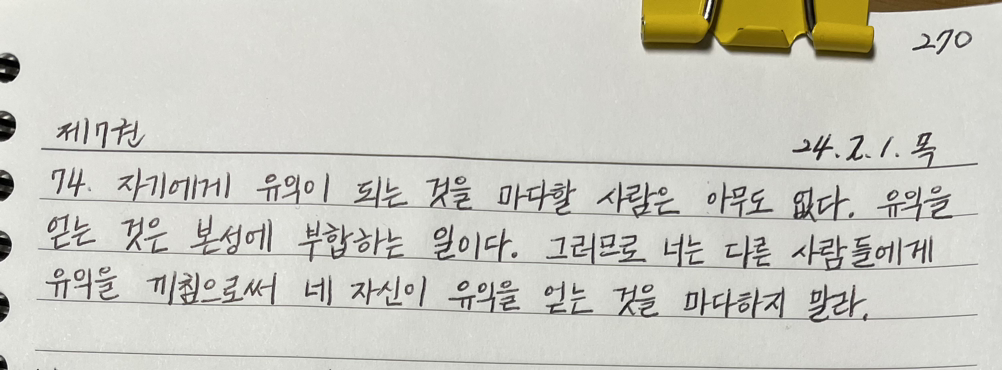 270
제7권
24.2.1.목
74. 자기에게 유익이 되는 것을 마다할 사람은 아무도 없다. 유익을
얻는 것은 본성에 부합하는 일이다. 그러므로 너는 다른 사람들에게
유익을 끼침으로써 네 자신이 유익을 얻는 것을 마다하지 말라.